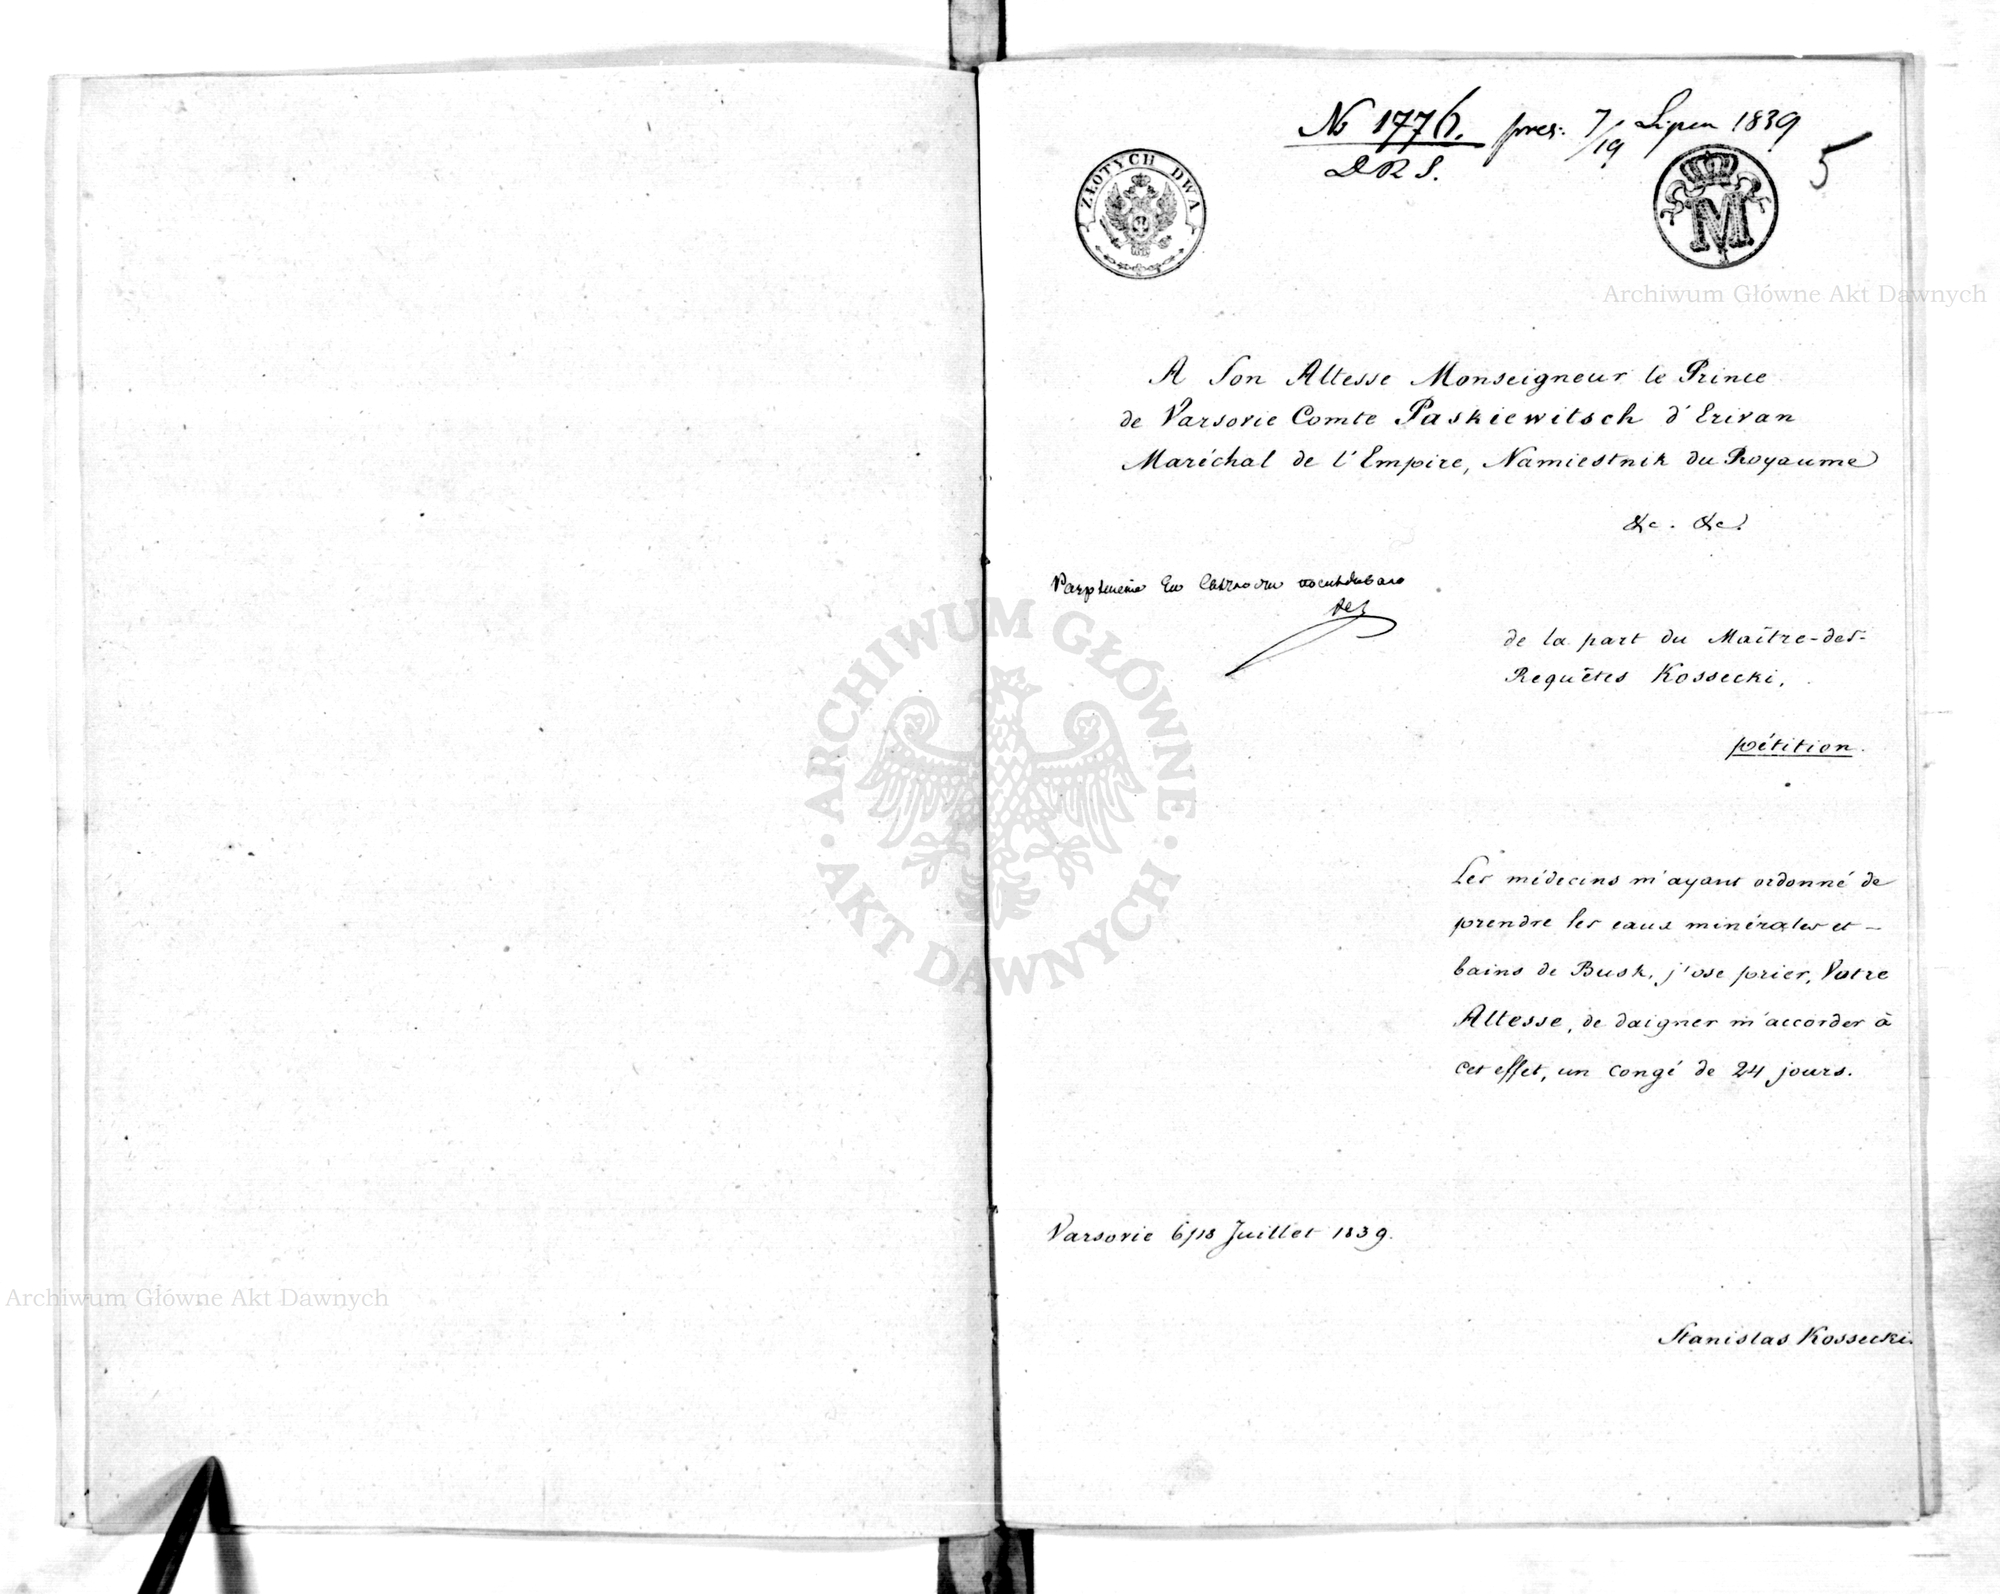 No 1776. pres: 7/19 Lipca 1839
D R S.
5
ZŁOTYCH DWA
M
Archiwum Główne Akt Dawnych
A Son Altesse Monseigneur le Prince
de Varsovie Comte Paskiewitsch d'Erivan
Maréchal de l'Empire, Namiestnik du Royaume
&c. &c.
Разрѣшенiе Его Свѣтлости послѣдовало
de la part du Maître-des-
Requêtes Kossecki,
pétition.
ARCHIWUM GŁÓWNE · AKT DAWNYCH ·
Les médecins m'ayant ordonné de
prendre les eaux minérales et
bains de Busk, j'ose prier, Votre
Altesse, de daigner m'accorder à
cet effet, un congé de 24 jours.
Varsovie 6/18 Juillet 1839.
Archiwum Główne Akt Dawnych
Stanislas Kossecki.